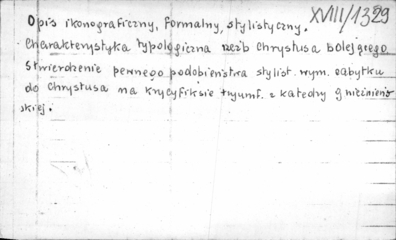 XVIII/1329
Opis ikonograficzny, formalny, stylistyczny.
Charakterystyka typologiczna rzeźb Chrystusa bolejącego
Stwierdzenie pewnego podobieństwa stylist. wym. zabytku
do Chrystusa na krucyfiksie tryumf. z katedry gnieźnień-
skiej.